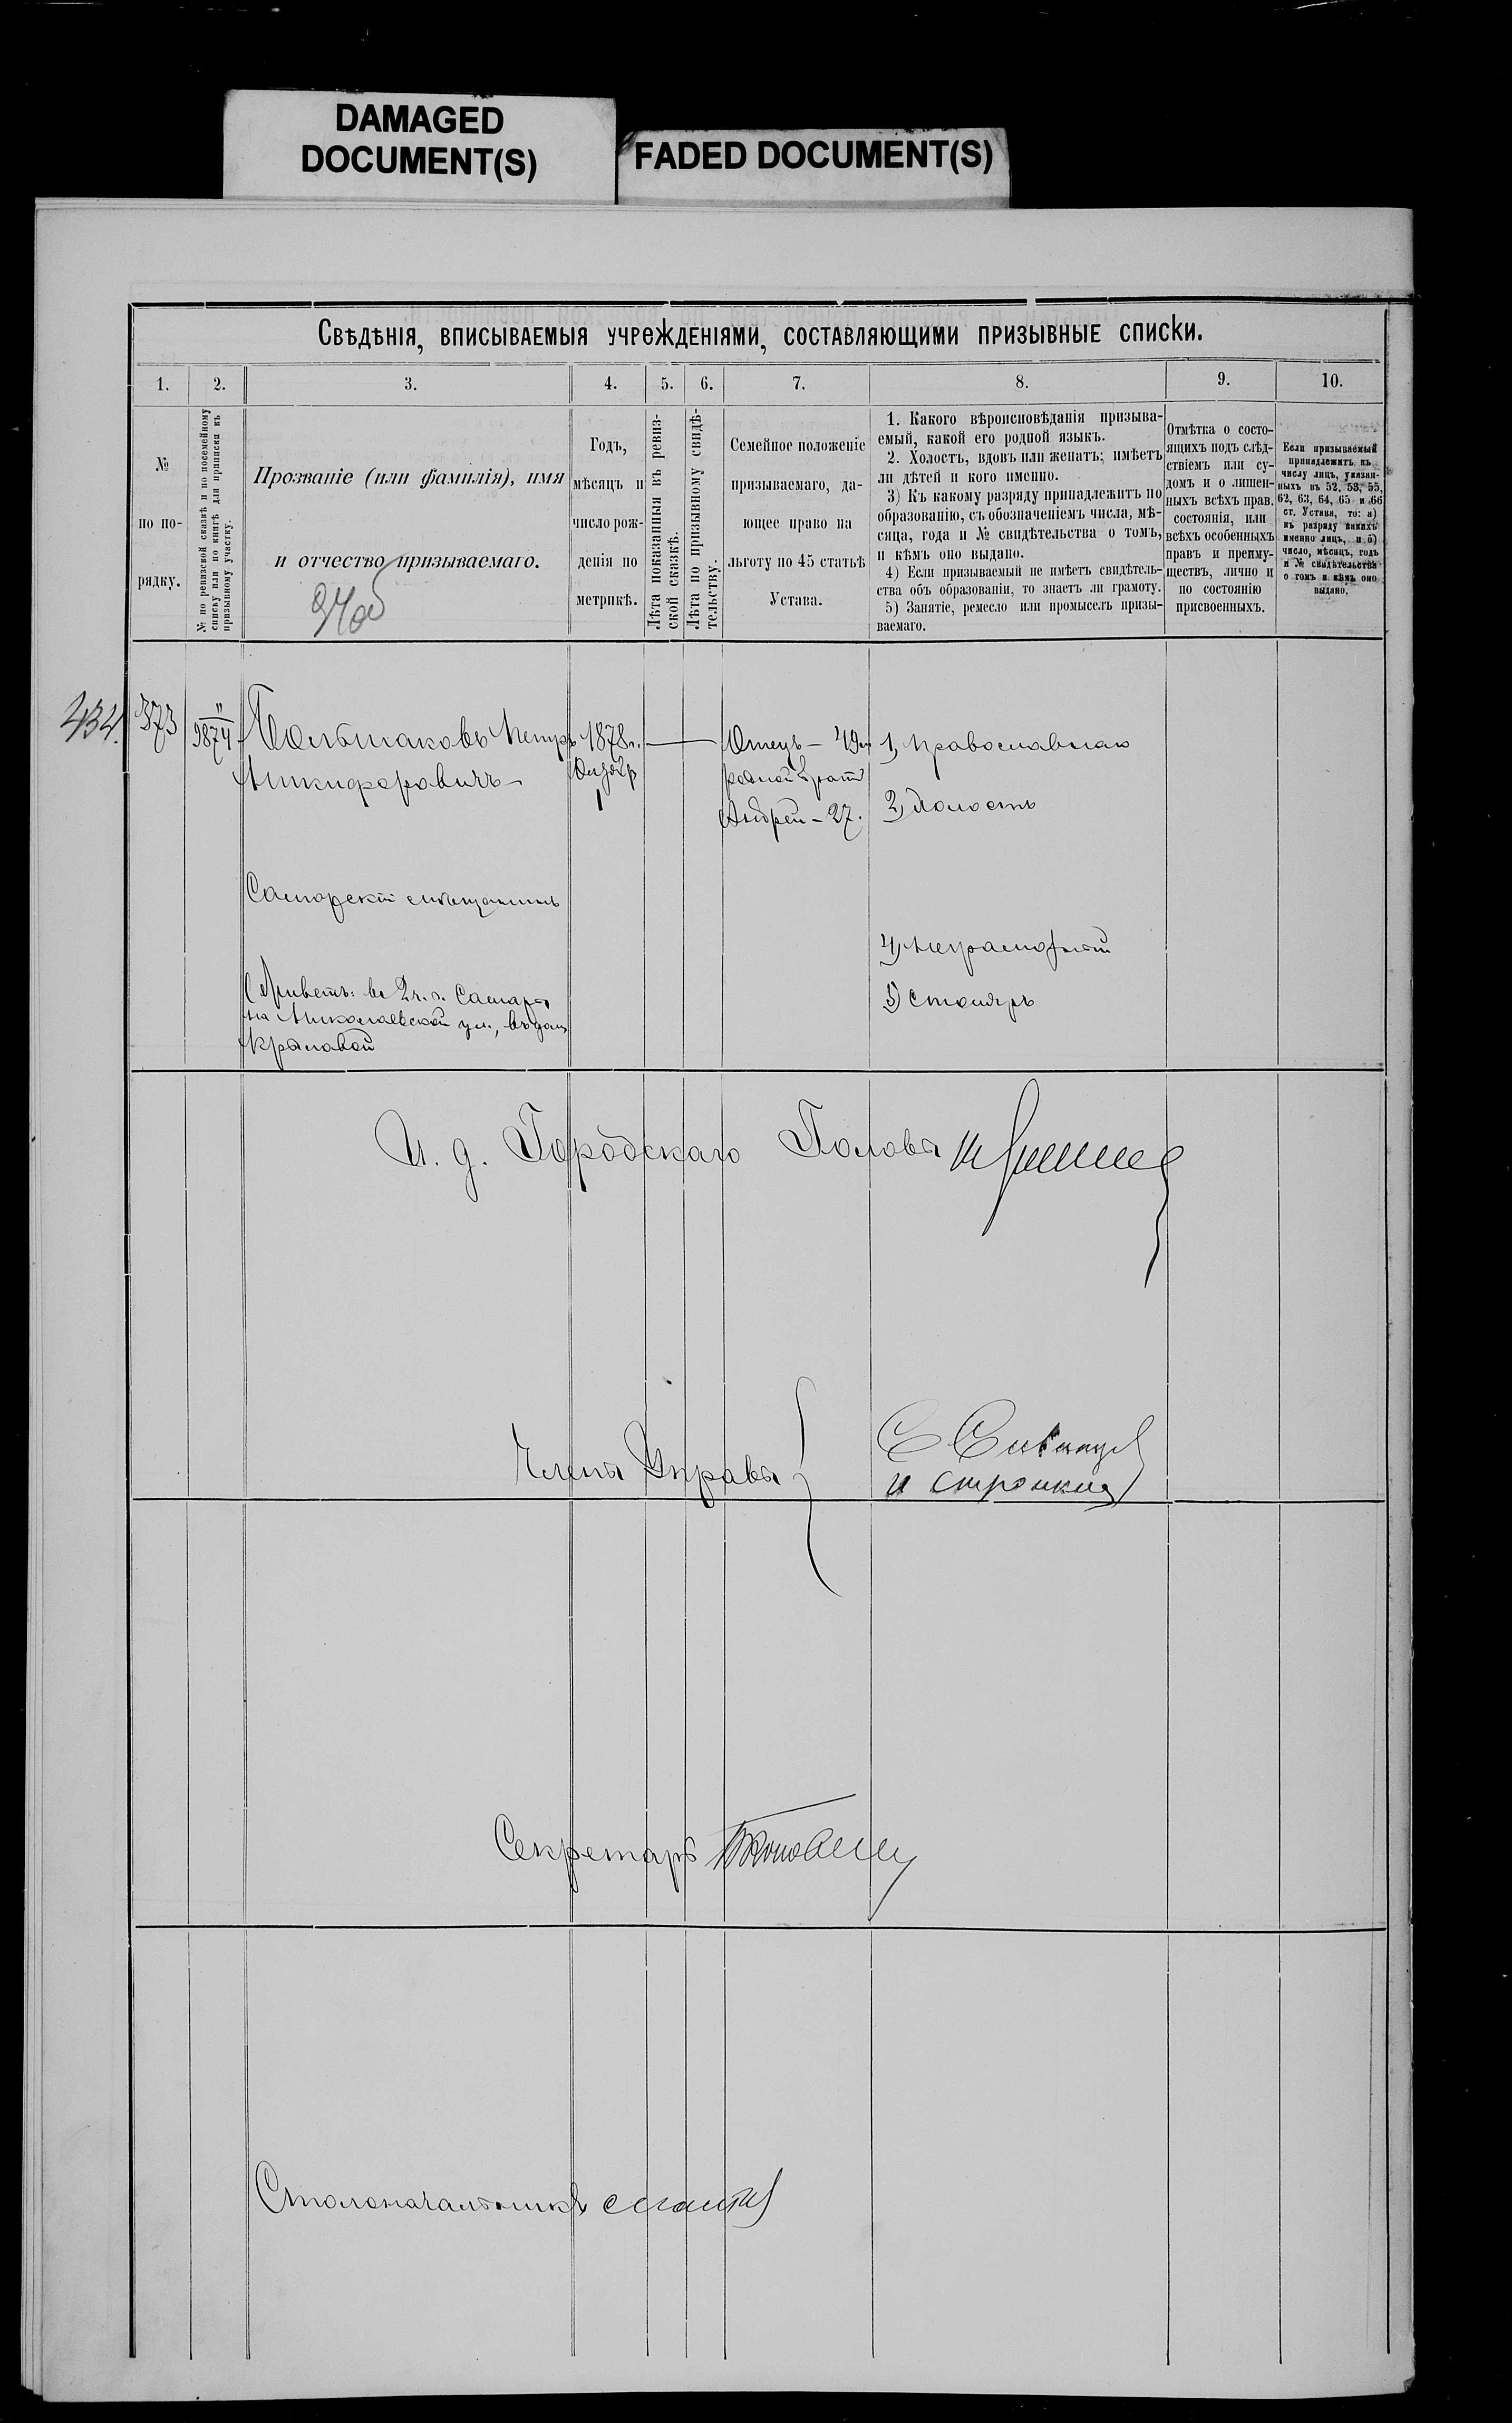 DAMAGED
DOCUMENT(S)
FADED DOCUMENT(S)
Свѣдѣнія, вписываемыя учрежденіями, составляющими призывные списки.
1. 2. 3. 4. 5. 6. 7. 8. 9. 10.
№
по по-
рядку.
№ по ревизской сказкѣ и по посемейному
списку или по книгѣ для приписки къ
призывному участку.
Прозваніе (или фамилія), имя
и отчество призываемаго.
Годъ,
мѣсяцъ и
число рож-
денія по
метрикѣ.
Лѣта показанныя въ ревиз-
ской сказкѣ.
Лѣта по призывному свидѣ-
тельству.
Семейное положеніе
призываемаго, да-
ющее право на
льготу по 45 статьѣ
Устава.
1. Какого вѣроисповѣданія призыва-
емый, какой его родной языкъ.
2. Холостъ, вдовъ или женатъ; имѣетъ
ли дѣтей и кого именно.
3) Къ какому разряду принадлежитъ по
образованію, съ обозначеніемъ числа, мѣ-
сяца, года и № свидѣтельства о томъ,
и кѣмъ оно выдано.
4) Если призываемый не имѣетъ свидѣтель-
ства объ образованіи, то знаетъ ли грамоту.
5) Занятіе, ремесло или промыселъ призы-
ваемаго.
Отмѣтка о состо-
ящихъ подъ слѣд-
ствіемъ или су-
домъ и о лишен-
ныхъ всѣхъ прав.
состоянія, или
всѣхъ особенныхъ
правъ и преиму-
ществъ, лично и
по состоянію
присвоенныхъ.
Если призываемый
принадлежитъ къ
числу лицъ, указан-
ныхъ въ 52, 53, 55,
62, 63, 64, 65 и 66
ст. Устава, то: а)
къ разряду какихъ
именно лицъ, и б)
число, мѣсяцъ, годъ
и № свидѣтельства
о томъ и кѣмъ оно
выдано.
434.
373
9874
Петръ
Никифоровичъ
1878 г.
Октяб
1
Отецъ – 49 л
родной братъ
Андрей – 27.
1, Православнаго
2, Холостъ
Самарскій мѣщанинъ
4, Неграмотный
5) Столяръ
Живетъ: во 2 ч. г. Самары
на Николаевской ул., въ дом
Крыловой
И. д. Городскаго Головы
Члены Управы
Секретарь
Столоначальникъ